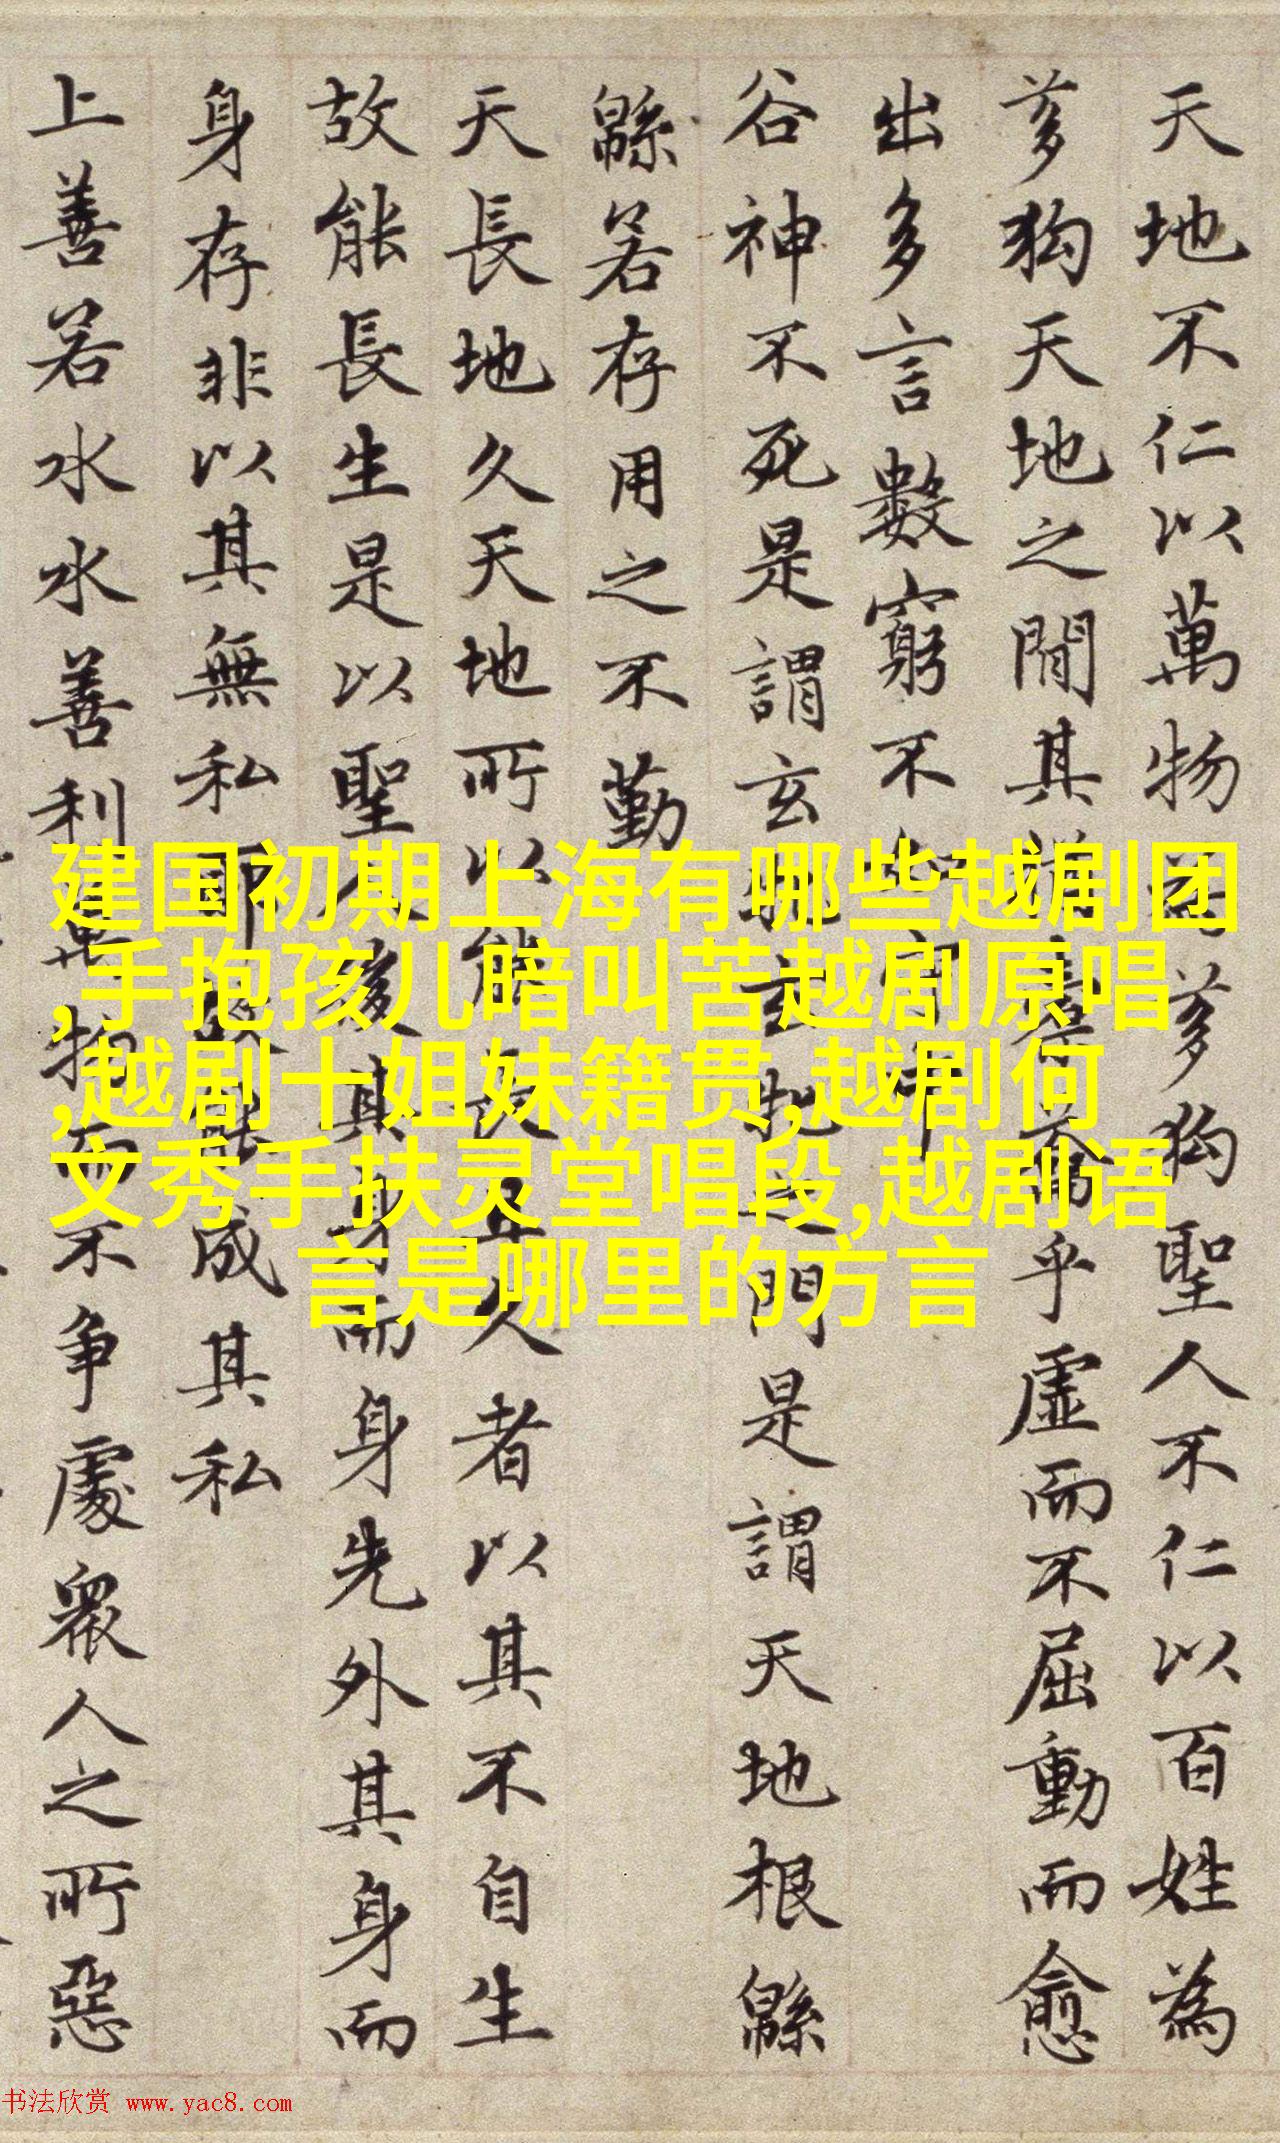 天地不仁以萬物為
芻狗天地之間其猶橐籥乎虛而不屈動而愈
出多言數窮不如守中
谷神不死是謂玄牝玄牝之門是謂天地根緜
緜若存用之不勤
天長地久天地所以能長且久者以其不自生
故能長生是以聖人後其身而身先外其身而
身存非以其無私耶故能成其私
上善若水水善利萬物而不争處衆人之所惡
建国初期上海有哪些越剧团
,手抱孩儿暗叫苦越剧原唱
,越剧十姐妹籍贯,越剧何
文秀手扶灵堂唱段,越剧语
言是哪里的方言
书法欣赏 www.yac8.com